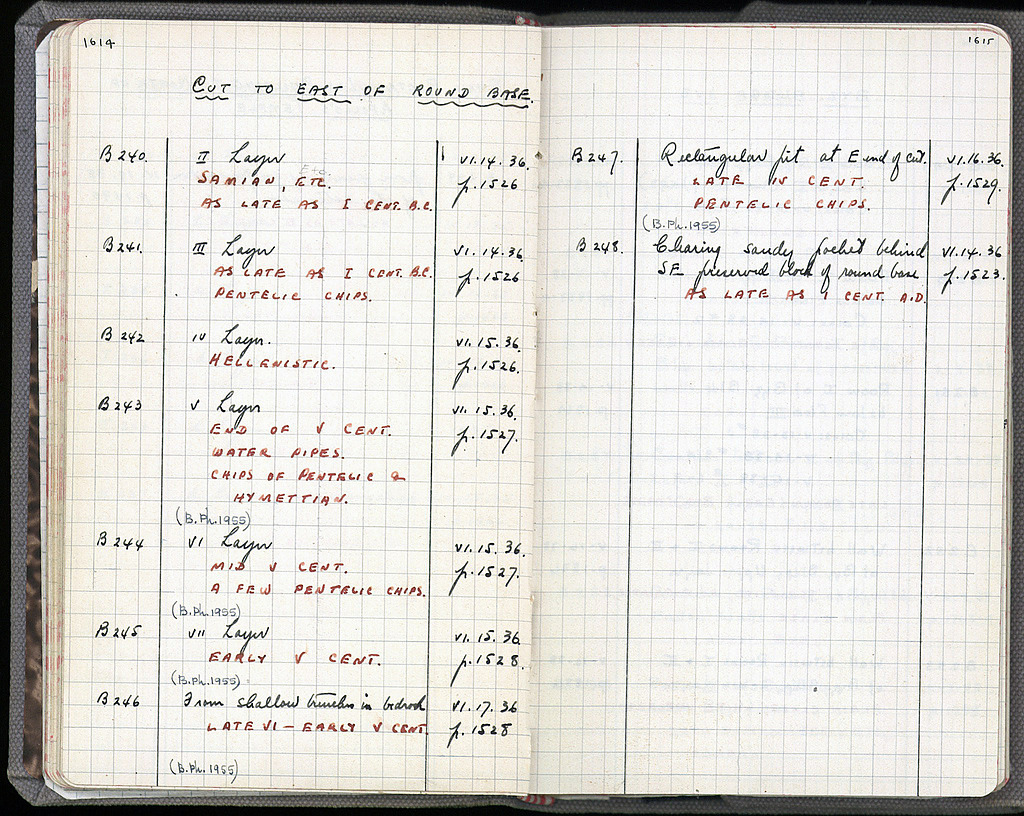 1614
CUT TO EAST OF ROUND BASE.
B 240. II Layer VI.14.36.
SAMIAN, ETC. p.1526
AS LATE AS I CENT. B.C.
B 241. III Layer VI.14.36.
AS LATE AS I CENT. B.C. p.1526
PENTELIC CHIPS.
B 242 IV Layer. VI.15.36.
HELLENISTIC. p.1526.
B 243 V Layer VI.15.36.
END OF V CENT. p.1527.
WATER PIPES.
CHIPS OF PENTELIC &
HYMETTIAN.
(B.Ph.1955)
B 244 VI Layer VI.15.36.
MID V CENT. p.1527.
A FEW PENTELIC CHIPS.
(B.Ph.1955)
B 245 VII Layer VI.15.36.
EARLY V CENT. p.1528.
(B.Ph.1955)
B 246 From shallow trenches in bedrock VI.17.36
LATE VI – EARLY V CENT. p.1528
(B.Ph.1955)
1615
B 247. Rectangular pit at E end of cut. VI.16.36.
LATE IV CENT. p.1529.
PENTELIC CHIPS.
(B.Ph.1955)
B 248. Clearing sandy pocket behind VI.14.36
SE preserved block of round base p.1523.
AS LATE AS I CENT. A.D.